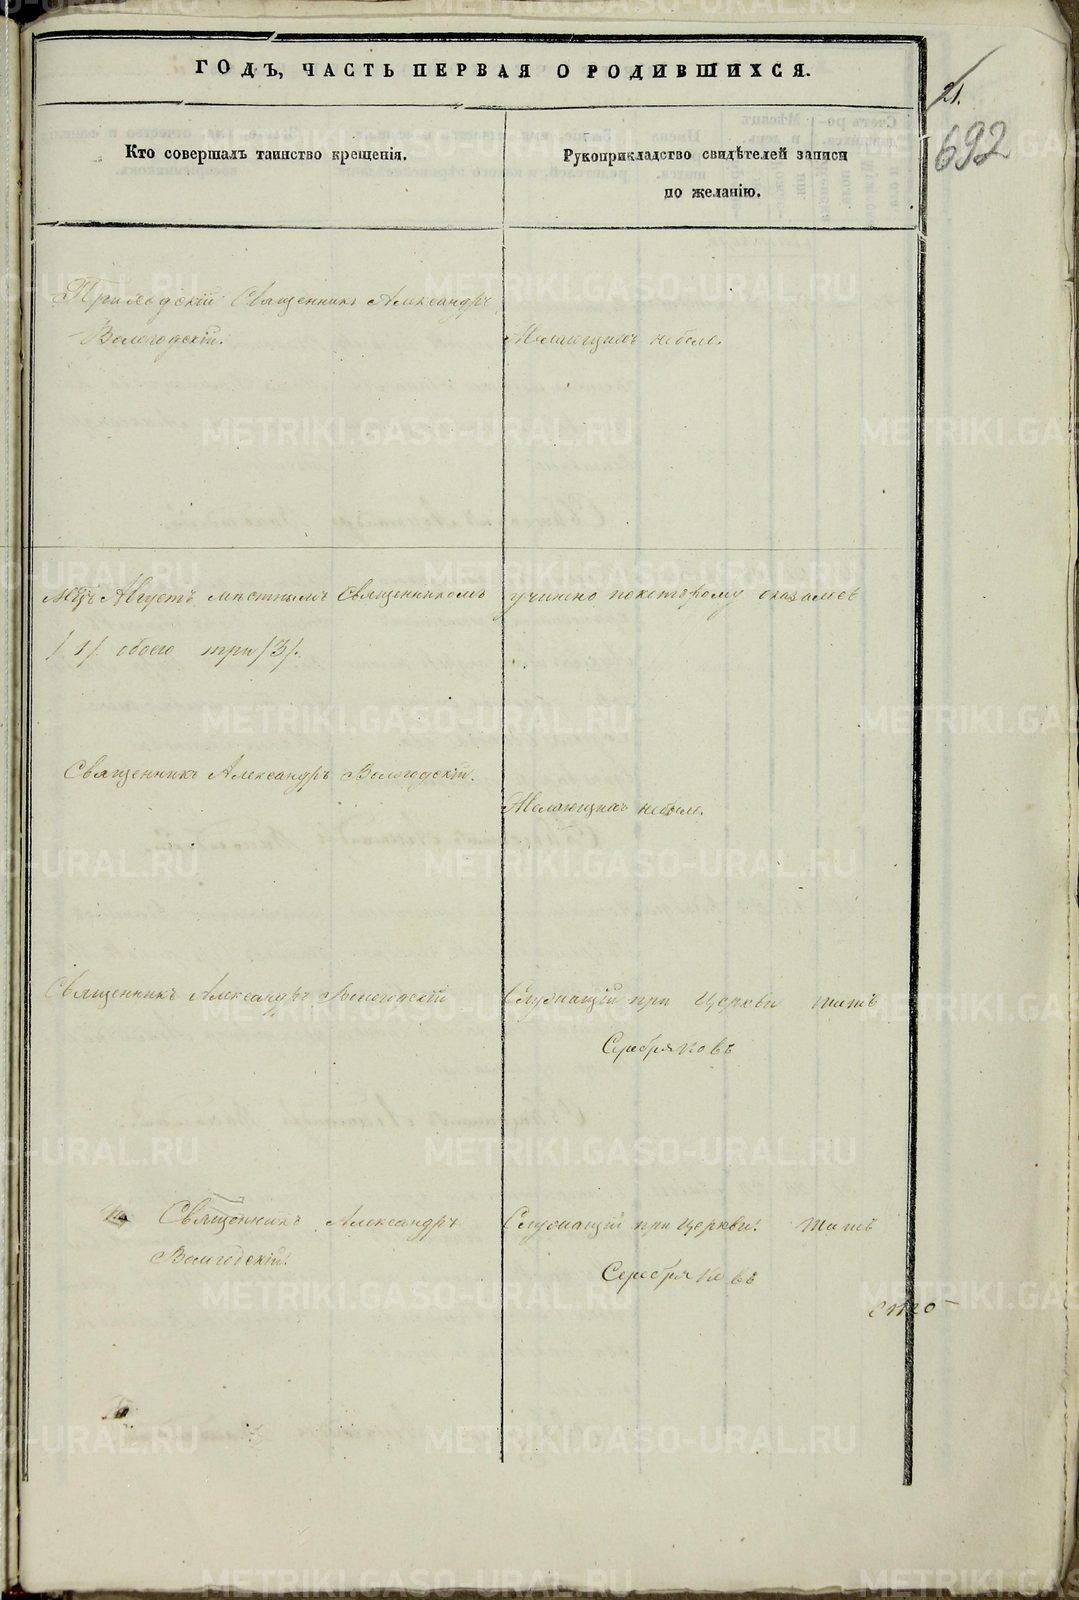 ГОДЪ, ЧАСТЬ ПЕРВАЯ О РОДИВШИХСЯ.
21.
692
Кто совершалъ таинство крещенія.
Рукоприкладство свидѣтелей записи
по желанію.
Священникъ Александръ
Вологодскій.
Желающихъ небыло.
Мцъ Августъ мѣстнымъ Священникомъ учинено покоторому оказалось
/1/. обоего три /3/.
Священникъ Александръ Вологодскій.
Желающихъ небыло.
Священникъ Александръ Вологодскій
Служащій при Церкви
Серебряковъ
Священникъ Александръ
Вологодскій.
Служащій при Церкви
Серебряковъ
METRIKI.GASO-URAL.RU